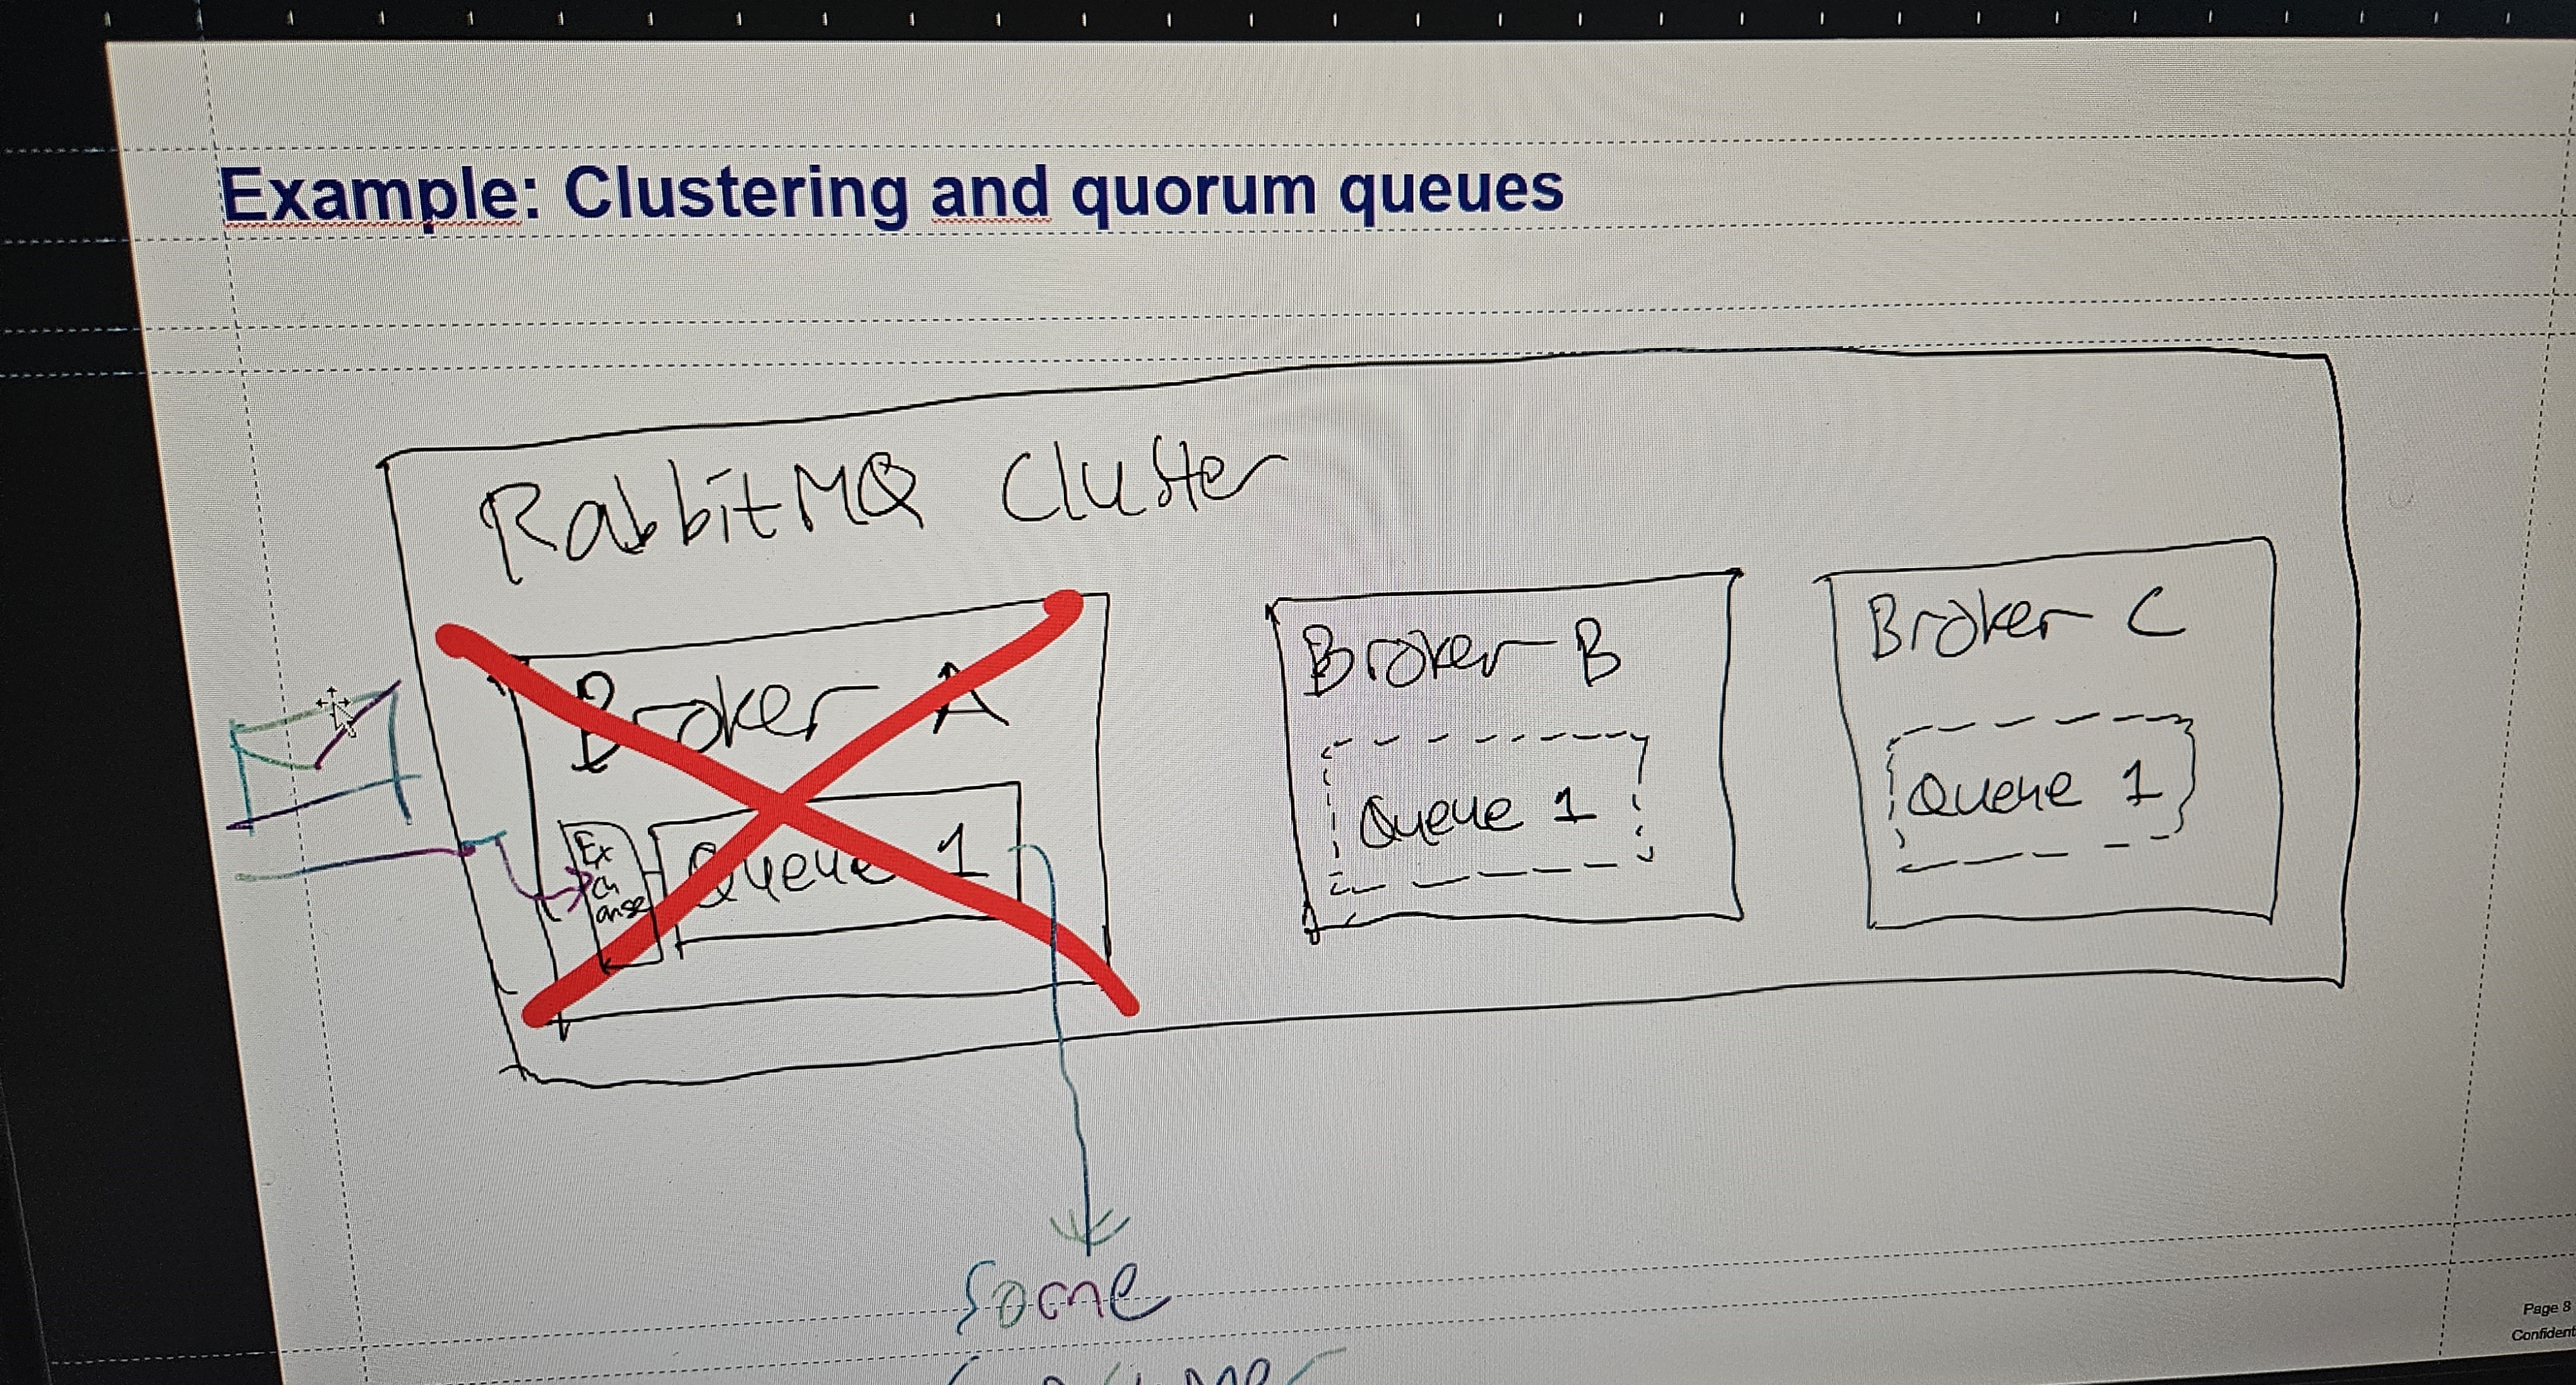 Example: Clustering and quorum queues
RabbitMQ Cluster
Broker A
Ex
ch
ange
Queue 1
Broker B
Queue 1
Broker C
Queue 1
Some
Page 8